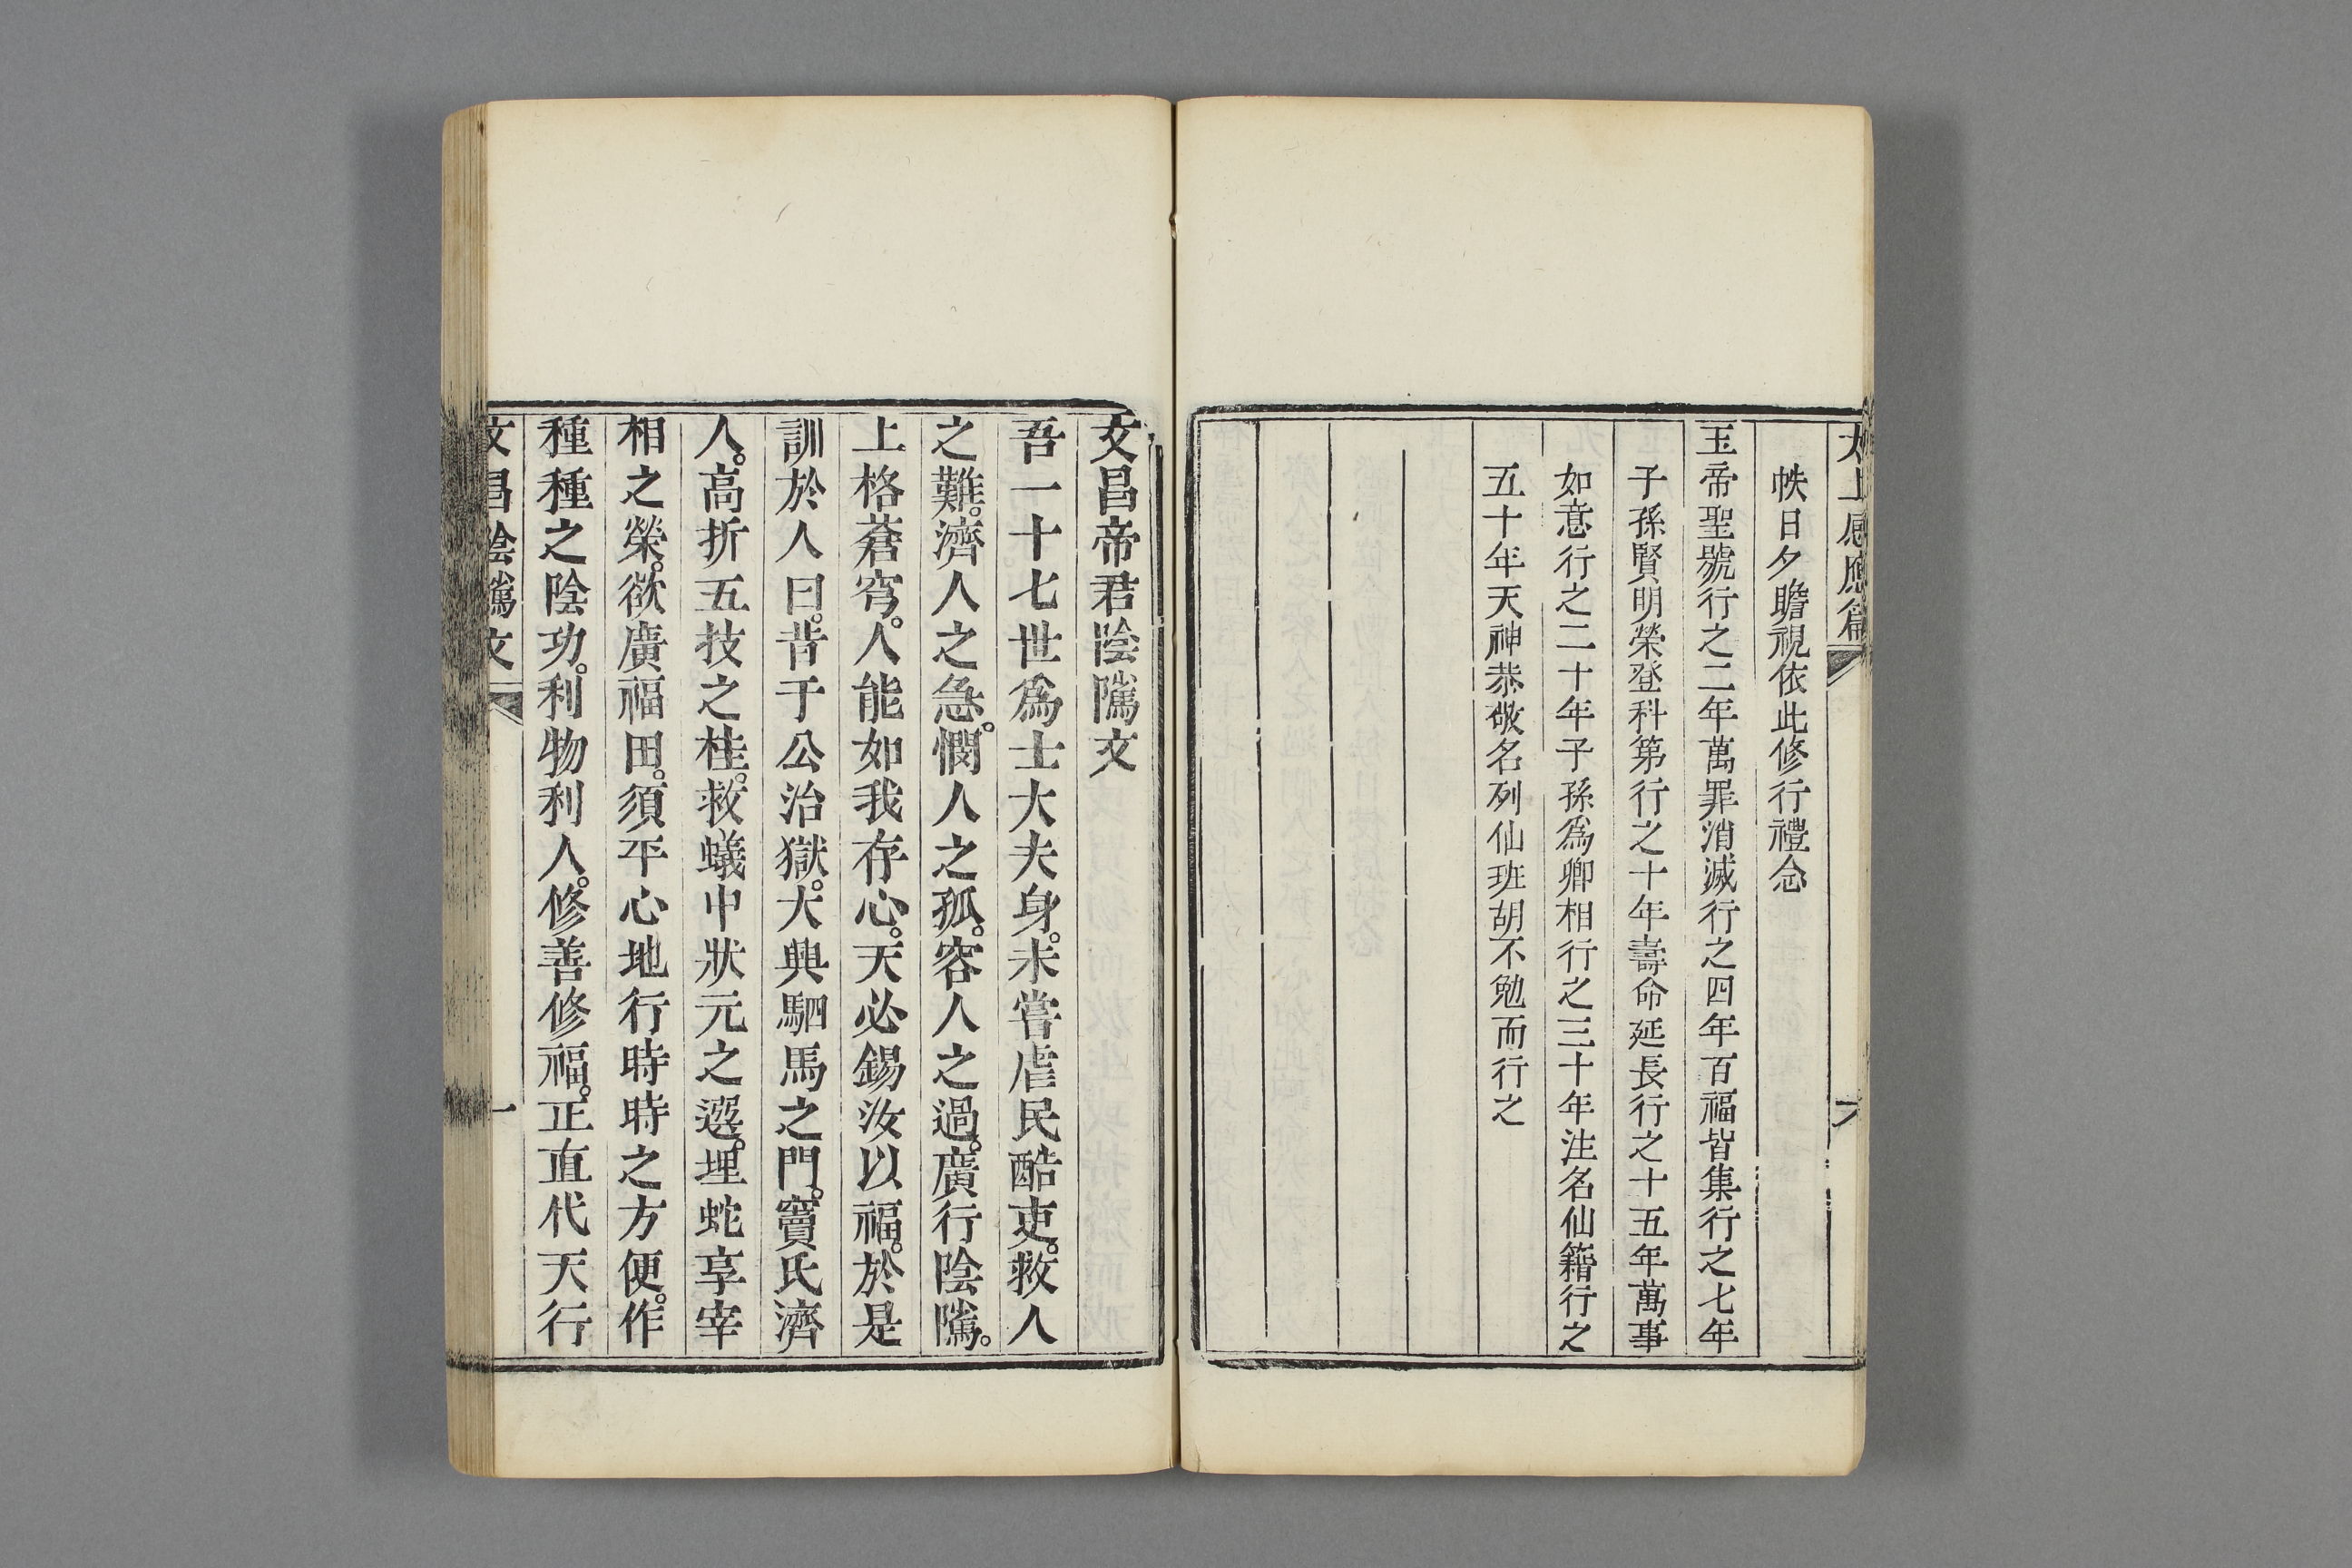 太上感應篇 六
帙日夕瞻視依此修行禮念
玉帝聖號行之二年萬罪消滅行之四年百福皆集行之七年
子孫賢明榮登科第行之十年壽命延長行之十五年萬事
如意行之二十年子孫為卿相行之三十年注名仙籍行之
五十年天神恭敬名列仙班胡不勉而行之
文昌帝君陰隲文
吾一十七世為士大夫身。未嘗虐民酷吏。救人
之難。濟人之急。憫人之孤。容人之過。廣行陰隲。
上格蒼穹。人能如我存心。天必錫汝以福。於是
訓於人曰。昔于公治獄。大興駟馬之門。竇氏濟
人。高折五技之桂。救蟻中狀元之選。埋蛇享宰
相之榮。欲廣福田。須平心地行時時之方便。作
種種之陰功。利物利人。修善修福。正直代天行
文昌陰隲文 一